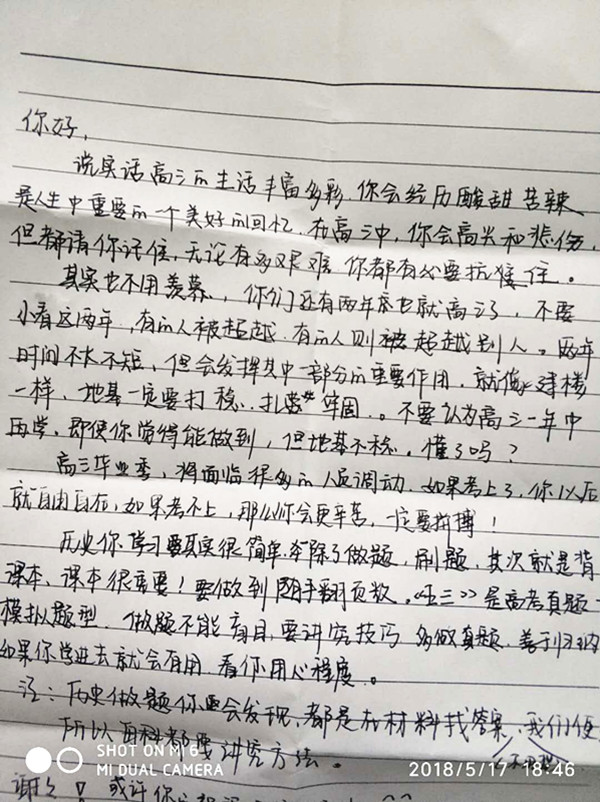 你好,
说实话高三的生活丰富多彩,你会经历酸甜苦辣
是人生中重要的一个美好的回忆.在高三中,你会高兴和悲伤,
但都请你记住,无论有多艰难 你都有必要抗 住。
其实也不用羡慕,你们还有两年 也就高三了,不要
小看这两年,有的人被超越.有的人则被超越别人。两年
时间不长不短,但会发挥其中一部分的重要作用,就像建楼
一样,地基一定要打稳.扎 牢固。不要认为高三一年中
再学,即使你觉得能做到,但地基不稳。懂了吗?
高三毕业季,将面临很多的人员调动.如果考上了,你以后
就自由自在,如果考不上,那么你会更辛苦,一定要拼搏!
历史你学习 其实很简单. 除了做题,刷题,其次就是背
课本、课本很重要!要做到随手翻页数。《五三》是高考真题
模拟题型.做题不能盲目,要讲究技巧 多做真题,善于归纳
如果你学进去就会有用.看你用心程度。
注:历史做题你会发现,都是在材料找答案,我们便
所以 科都要讲究方法。
谢谢! 或许你
SHOT ON MI 6
MI DUAL CAMERA
2018/5/17 18:46